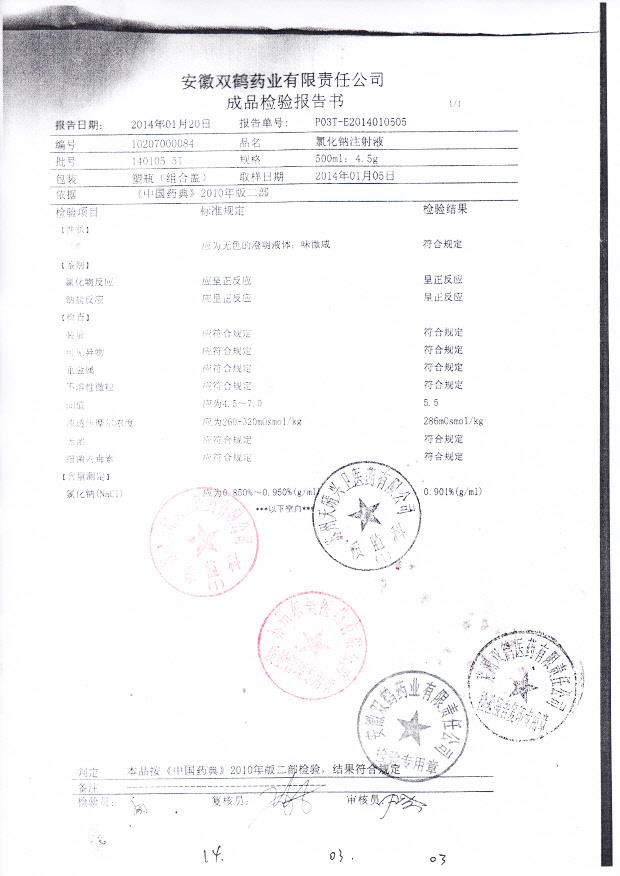 安徽双鹤药业有限责任公司
成品检验报告书
1/1
报告日期: 2014年01月20日 报告单号: P03T-E2014010505
编号 10207000084 品名 氯化钠注射液
批号 140105 5T 规格 500ml: 4.5g
包装 塑瓶(组合盖) 取样日期 2014年01月05日
依据 《中国药典》2010年版二部
检验项目 标准规定 检验结果
【性状】
应为无色的澄明液体; 味微咸 符合规定
【鉴别】
氯化物反应 应呈正反应 呈正反应
钠盐反应 应呈正反应 呈正反应
【检查】
装量 应符合规定 符合规定
可见异物 应符合规定 符合规定
重金属 应符合规定 符合规定
不溶性微粒 应符合规定 符合规定
pH值 应为4.5~7.0 5.5
渗透压摩尔浓度 应为260-320mOsmol/kg 286mOsmol/kg
无菌 应符合规定 符合规定
细菌内毒素 应符合规定 符合规定
【含量测定】
氯化钠(NaCl) 应为0.850%~0.950%(g/ml) 0.901%(g/ml)
***以下空白***
质监科
(1)
质监科
(1)
安徽双鹤药业有限责任公司
检验专用章
判定 本品按《中国药典》2010年版二部检验, 结果符合规定
备注
检验员: 复核员: 审核员:
14. 03. 03